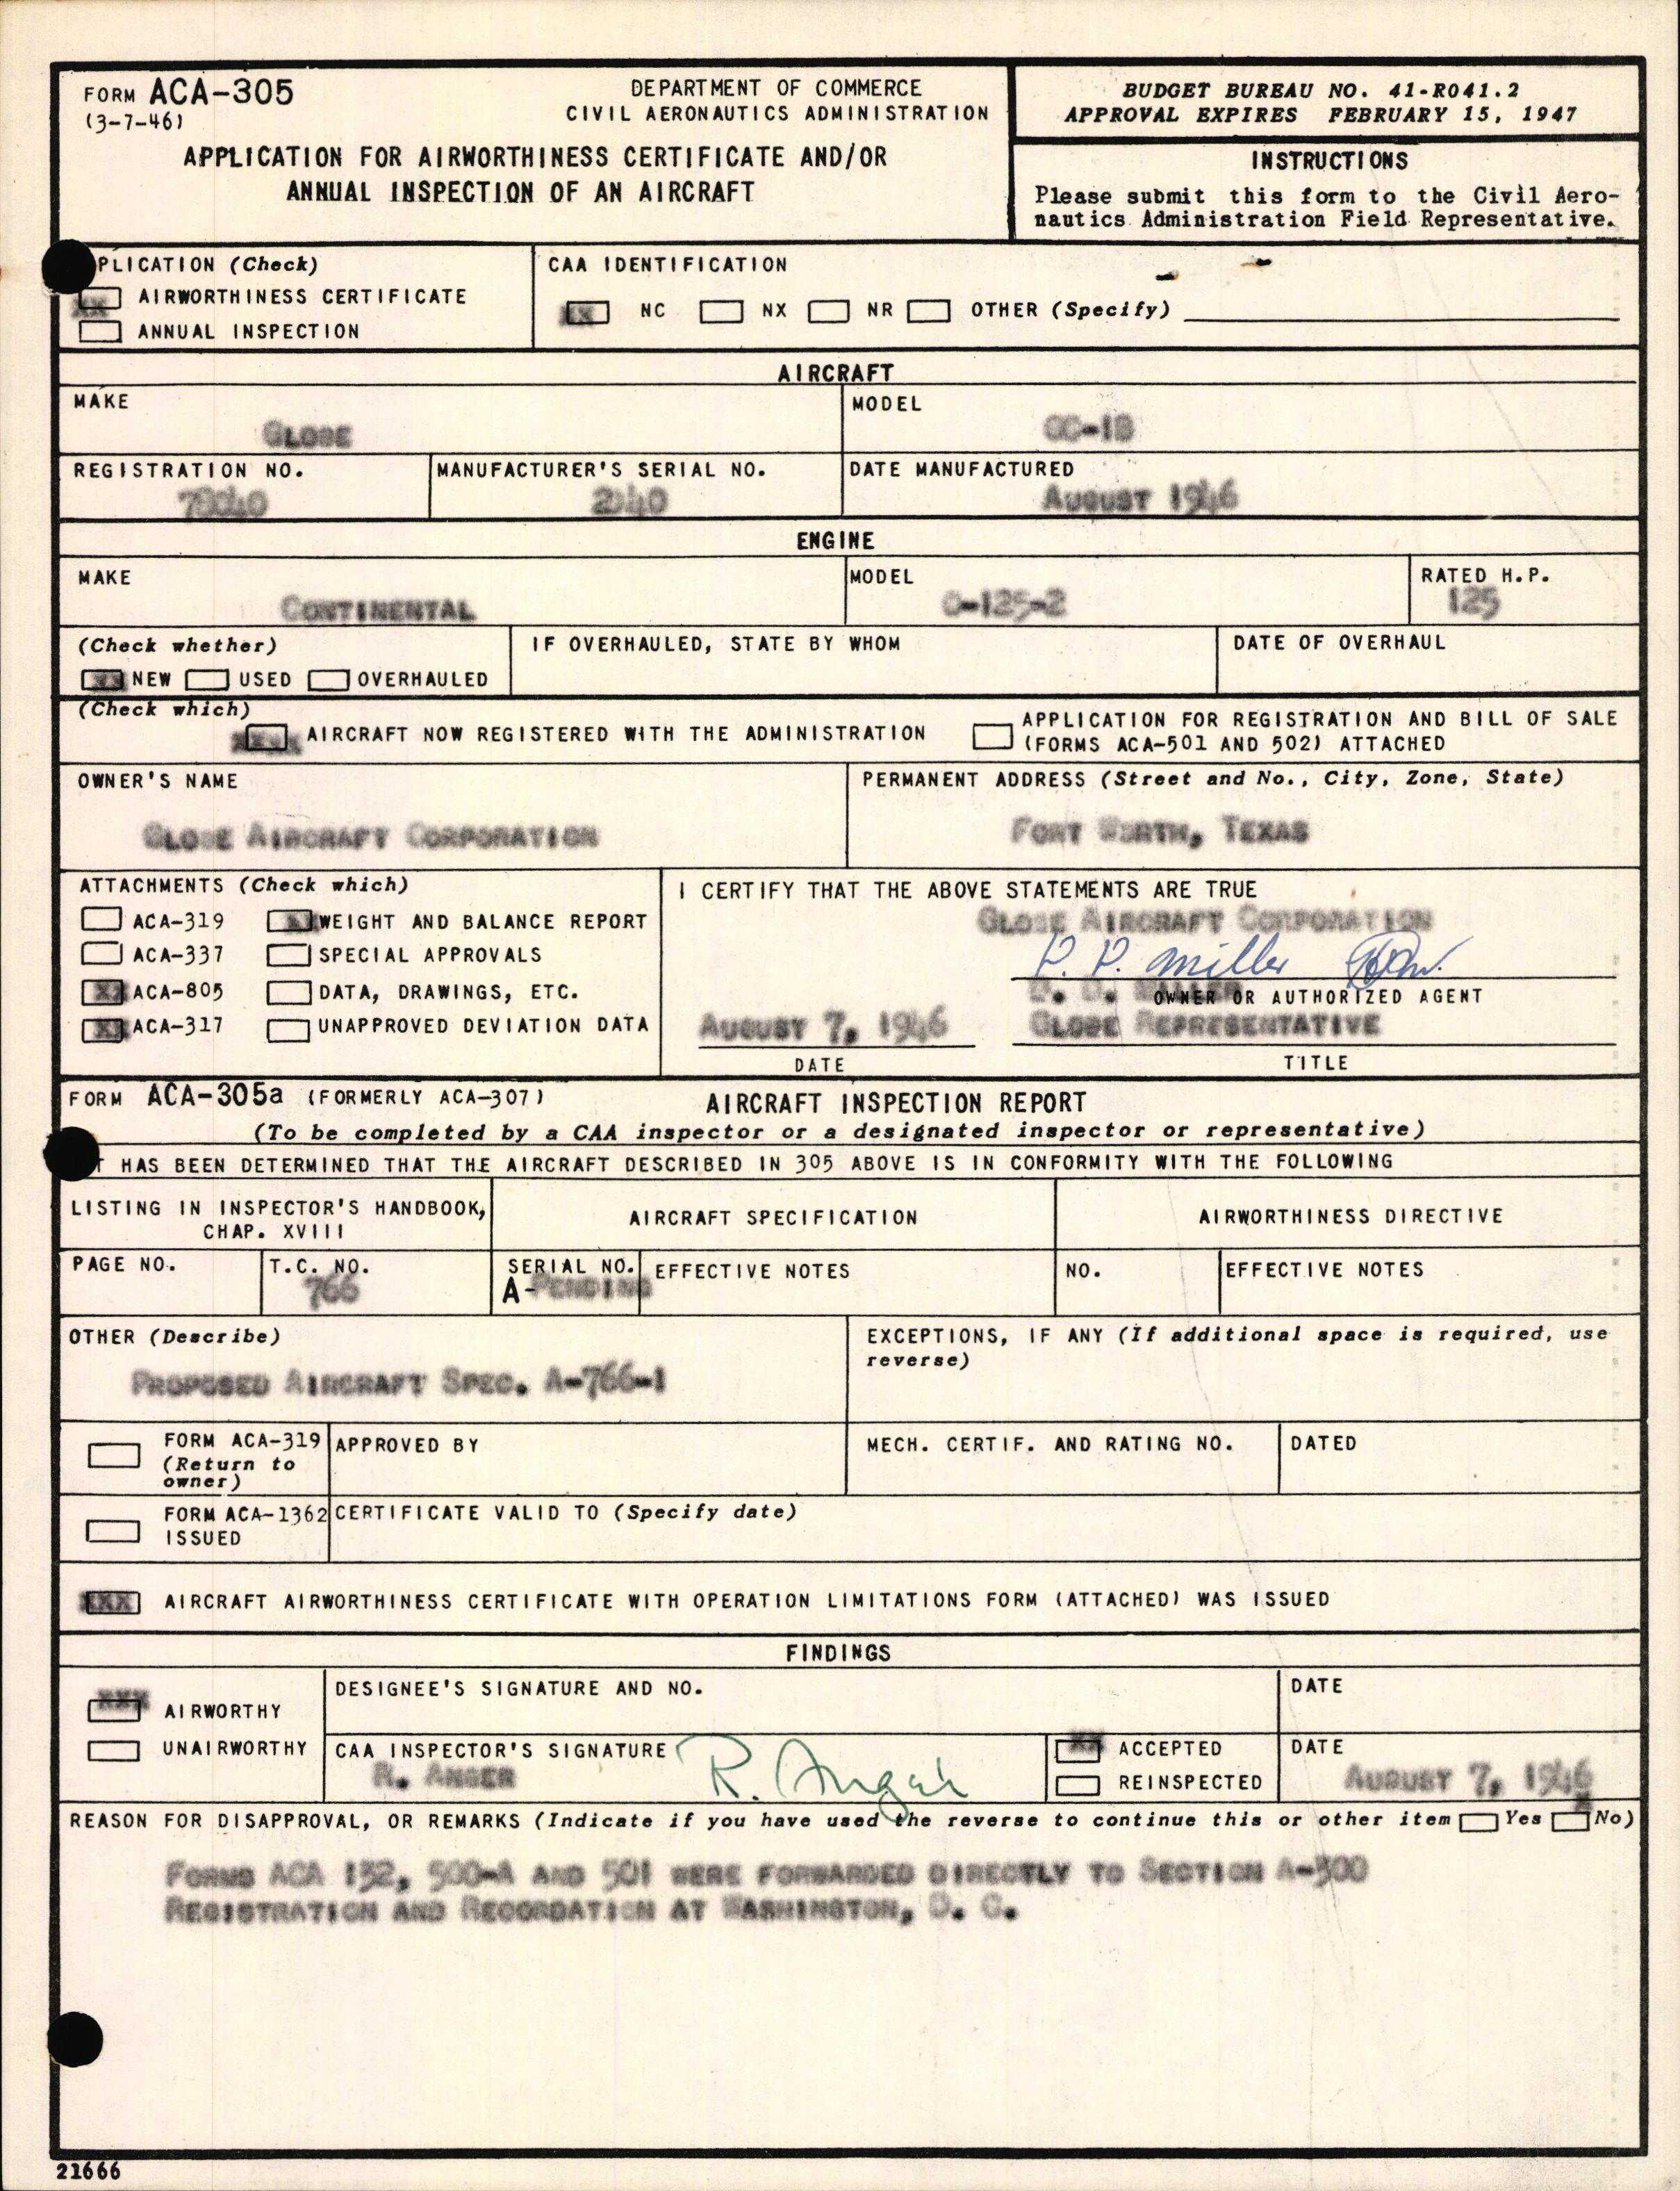 FORM ACA-305
(3-7-46)
DEPARTMENT OF COMMERCE
CIVIL AERONAUTICS ADMINISTRATION
APPLICATION FOR AIRWORTHINESS CERTIFICATE AND/OR
ANNUAL INSPECTION OF AN AIRCRAFT
BUDGET BUREAU NO. 41-R041.2
APPROVAL EXPIRES FEBRUARY 15, 1947
INSTRUCTIONS
Please submit this form to the Civil Aero-
nautics Administration Field Representative.
PLICATION (Check)
XX AIRWORTHINESS CERTIFICATE
ANNUAL INSPECTION
CAA IDENTIFICATION
XX NC NX NR OTHER (Specify)
AIRCRAFT
MAKE
GLOBE
MODEL
GC-1B
REGISTRATION NO.
MANUFACTURER'S SERIAL NO.
DATE MANUFACTURED
AUGUST 1946
ENGINE
MAKE
CONTINENTAL
MODEL
C-125-2
RATED H.P.
125
(Check whether)
XX NEW USED OVERHAULED
IF OVERHAULED, STATE BY WHOM
DATE OF OVERHAUL
(Check which)
AIRCRAFT NOW REGISTERED WITH THE ADMINISTRATION
APPLICATION FOR REGISTRATION AND BILL OF SALE
(FORMS ACA-501 AND 502) ATTACHED
OWNER'S NAME
GLOBE AIRCRAFT CORPORATION
PERMANENT ADDRESS (Street and No., City, Zone, State)
FORT WORTH, TEXAS
ATTACHMENTS (Check which)
ACA-319 XX WEIGHT AND BALANCE REPORT
ACA-337 SPECIAL APPROVALS
XX ACA-805 DATA, DRAWINGS, ETC.
XX ACA-317 UNAPPROVED DEVIATION DATA
I CERTIFY THAT THE ABOVE STATEMENTS ARE TRUE
GLOBE AIRCRAFT CORPORATION
Miller
OWNER OR AUTHORIZED AGENT
AUGUST 7, 1946
GLOBE REPRESENTATIVE
DATE
TITLE
FORM ACA-305a (FORMERLY ACA-307)
AIRCRAFT INSPECTION REPORT
(To be completed by a CAA inspector or a designated inspector or representative)
T HAS BEEN DETERMINED THAT THE AIRCRAFT DESCRIBED IN 305 ABOVE IS IN CONFORMITY WITH THE FOLLOWING
LISTING IN INSPECTOR'S HANDBOOK,
CHAP. XVIII
AIRCRAFT SPECIFICATION
AIRWORTHINESS DIRECTIVE
PAGE NO.
T.C. NO.
766
SERIAL NO.
A-PENDING
EFFECTIVE NOTES
NO.
EFFECTIVE NOTES
OTHER (Describe)
PROPOSED AIRCRAFT SPEC. A-766-1
EXCEPTIONS, IF ANY (If additional space is required, use
reverse)
FORM ACA-319
(Return to
owner)
APPROVED BY
MECH. CERTIF. AND RATING NO.
DATED
FORM ACA-1362
ISSUED
CERTIFICATE VALID TO (Specify date)
XXX AIRCRAFT AIRWORTHINESS CERTIFICATE WITH OPERATION LIMITATIONS FORM (ATTACHED) WAS ISSUED
FINDINGS
XXX AIRWORTHY
UNAIRWORTHY
DESIGNEE'S SIGNATURE AND NO.
DATE
CAA INSPECTOR'S SIGNATURE
R. ANGER
XX ACCEPTED
REINSPECTED
DATE
AUGUST 7, 1946
REASON FOR DISAPPROVAL, OR REMARKS (Indicate if you have used the reverse to continue this or other item Yes X No)
FORMS ACA 132, 500-A AND 501 WERE FORWARDED DIRECTLY TO SECTION A-300
REGISTRATION AND RECORDATION AT WASHINGTON, D. C.
21666